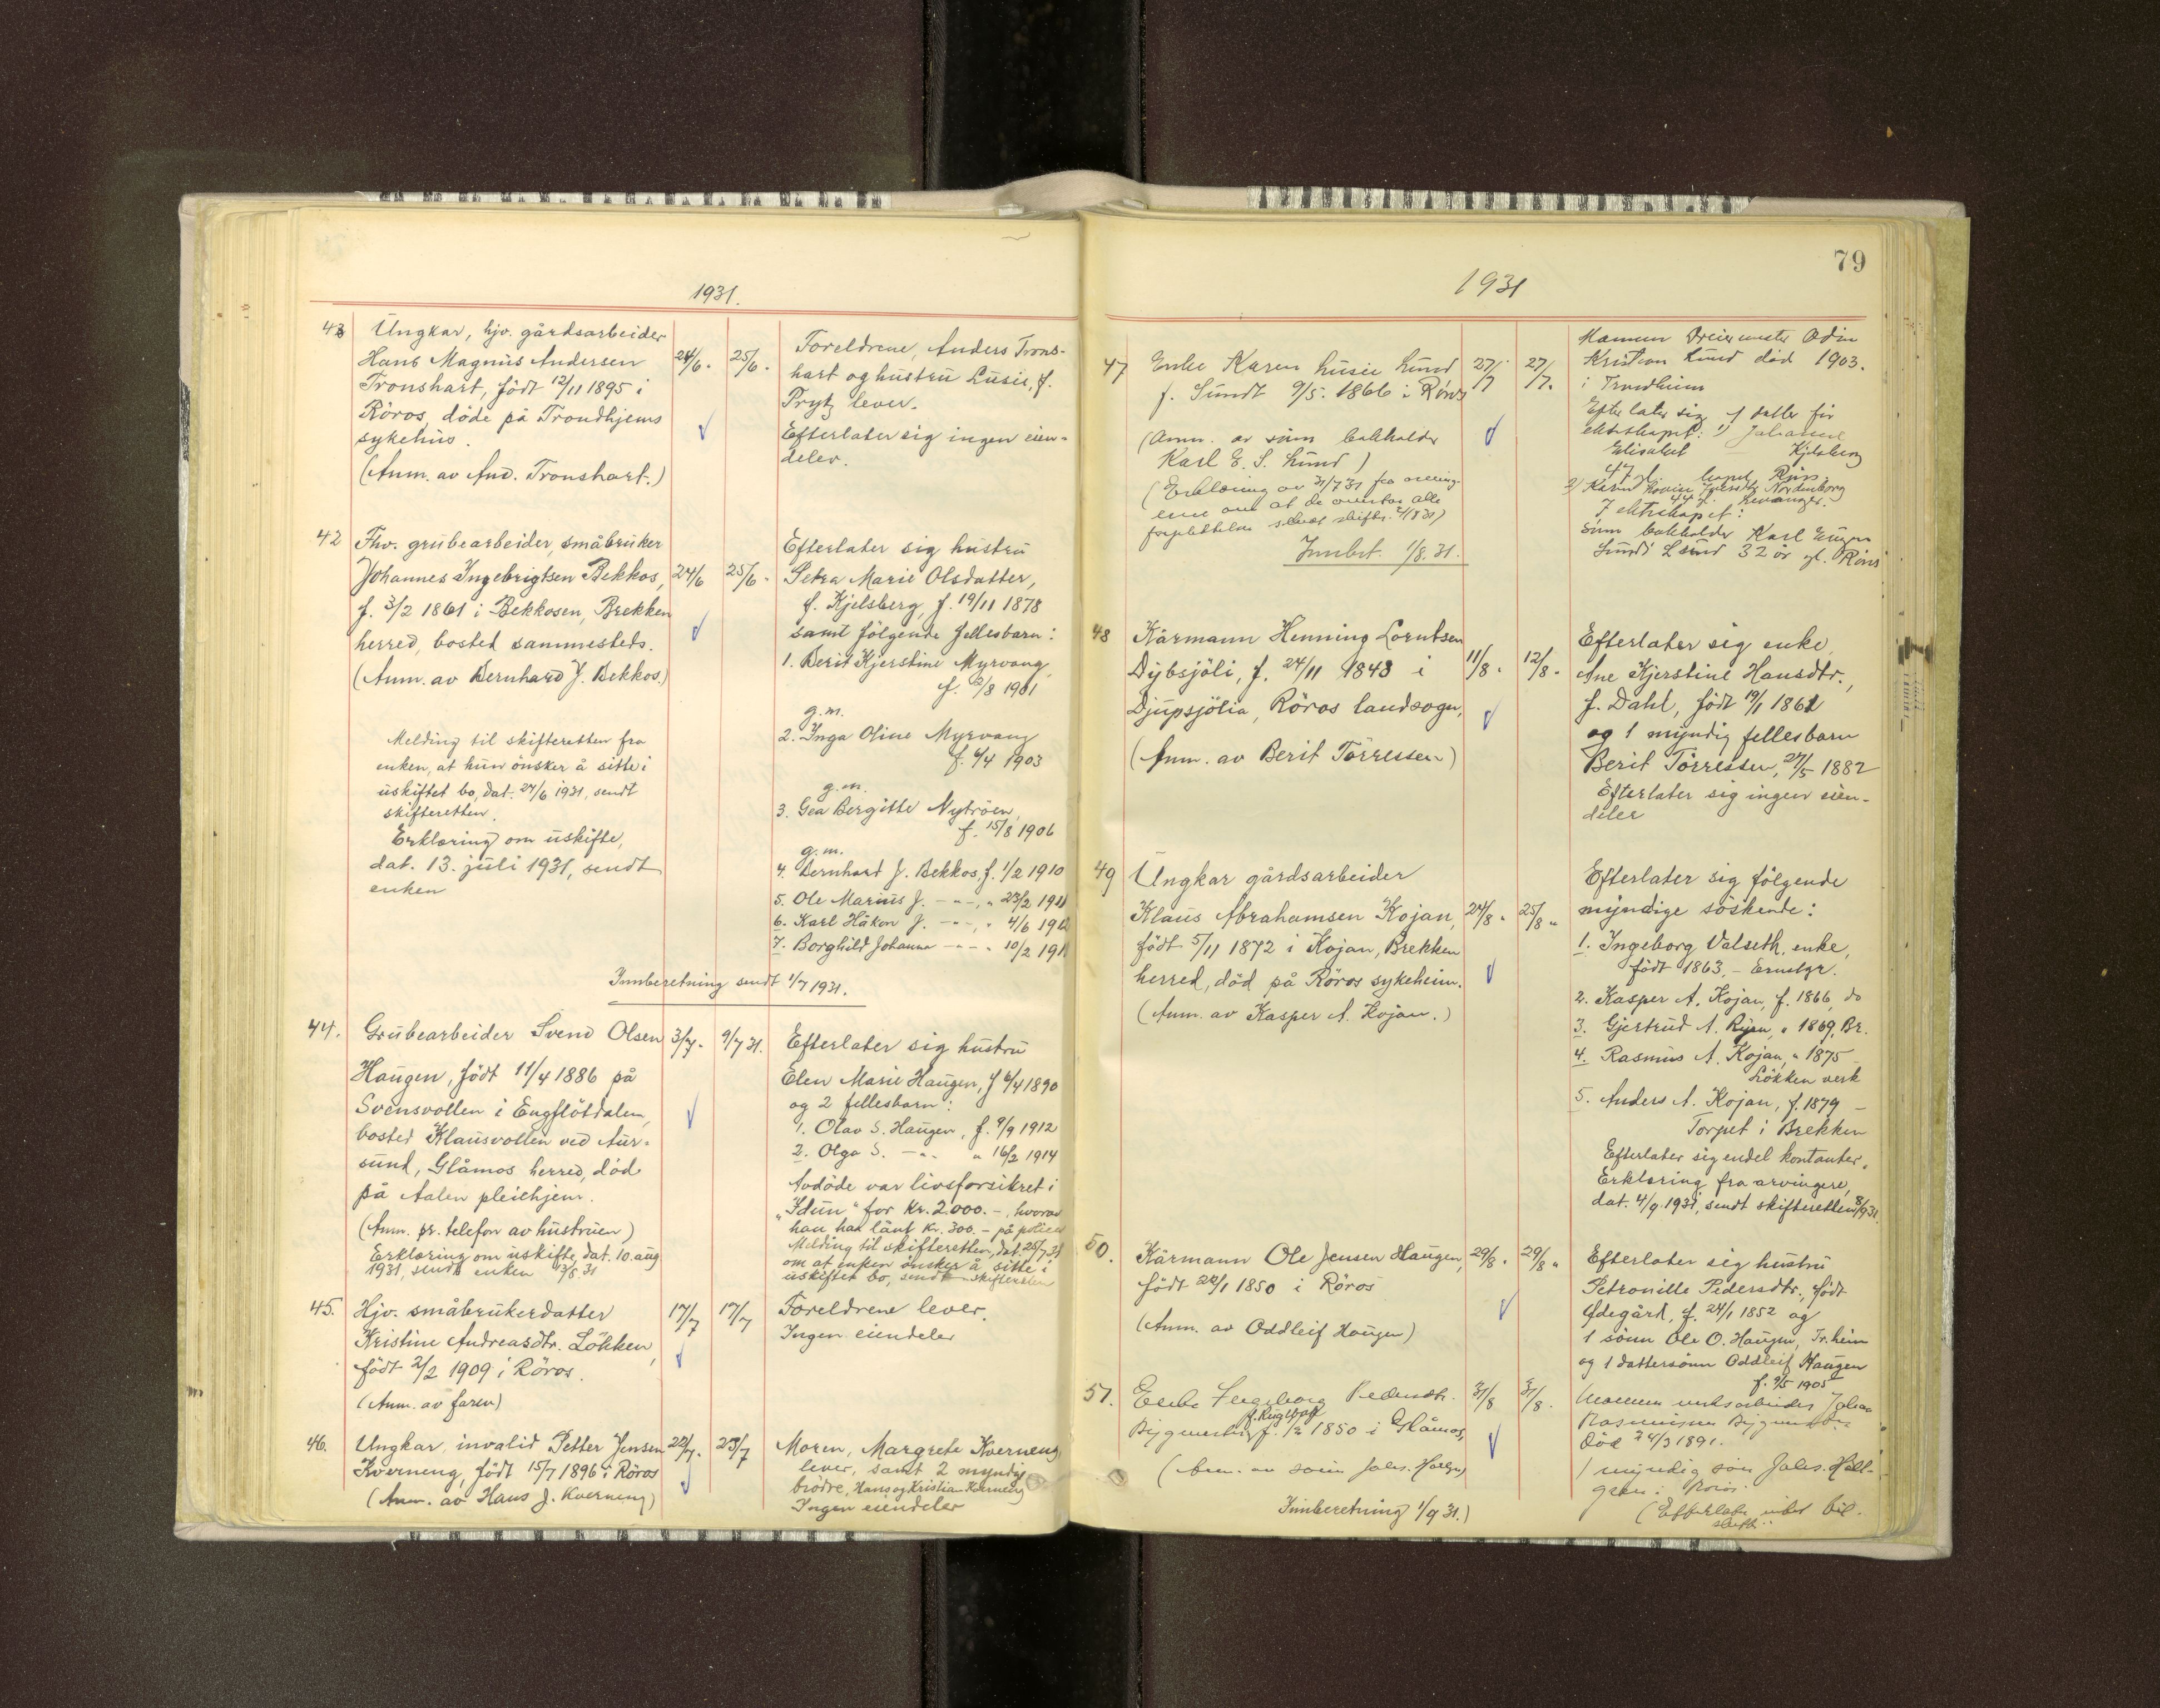 1931.
43 Ungkar, hjv. gårdsarbeider
Hans Magnus Andersen 24/6. 25/6.
Tronshart, födt 12/11 1895 i
Röros, döde på Trondhjems
sykehus.
(Anm. av And. Tronshart.)
Foreldrene, Anders Trons-
hart og hustru Lusie, f.
Prytz lever.
Efterlater sig ingen eien-
deler.
42 Fhv. grubearbeider, småbruker
Johannes Ingebrigtsen Bekkos, 24/6 25/6.
f. 3/2 1861 i Bekkosen, Brekken
herred, bosted sammesteds.
(Anm. av Bernhard J. Bekkos.)
Melding til skifteretten fra
enken, at hun önsker å sitte i
uskiftet bo, dat. 27/6 1931, sendt
skifteretten.
Erklæring om uskifte,
dat. 13. juli 1931, sendt
enken
Efterlater sig hustru
Petra Marie Olsdatter,
f. Kjelsberg, f. 19/11 1878
samt fölgende fellesbarn:
1. Berit Kjerstine Myrvang,
f. /8 1901
g.m.
2. Inga Oline Myrvang
f. 4/4 1903
g.m.
3. Gea Bergitte Nytröen,
f. 15/8 1906
g.m.
4. Bernhard J. Bekkos, f. 1/2 1910
5. Ole Marius J. -"-, " 23/2
6. Karl Håkon J. -"-, " 4/6
7. Borghild Johanna -"- " 10/2
Innberetning sendt 1/7 1931.
44. Grubearbeider Svend Olsen 3/7. 9/7 31.
Haugen, födt 11/4 1886 på
Svensvollen i Engflötdalen,
bosted Klausvollen ved Aur-
sund, Glåmos herred, död
på Aalen pleiehjem.
(Anm. pr. telefon av hustruen)
Erklæring om uskifte, dat. 10. aug.
1931, sendt enken 13/8 31
Efterlater sig hustru
Elen Marie Haugen, f 6/4 1890
og 2 fellesbarn:
1. Olav S. Haugen, f. 9/9 1912
2. Olga S. -"- " 16/2 1914
Avdöde var livsforsikret i
"Idun" for kr. 2.000.-, hvorav
han har lånt kr. 300.- på policen
Melding til skifteretten, dat. 25/7 31
om at enken önsker å sitte i
uskiftet bo, sendt skifteretten
45. Hjv. småbrukerdatter 17/7 17/7
Kristine Andreasdtr. Lökken,
födt 2/2 1909 i Röros.
(Anm. av faren)
Foreldrene lever.
Ingen eiendeler
46. Ungkar, invalid Petter Jensen 22/7. 23/7
Kverneng, födt 15/7 1896 i Röros
(Anm. av Hans J. Kverneng)
Moren, Margrete Kverneng
lever, samt 2 myndig
brödre, Hans og Kristian Kverneng
Ingen eiendeler
79
1931
47 Enke Karen Lusie Lund 27/7 27/7.
f. Sundt 9/5. 1866 i Röros
(Anm. av sönn bokholder
Karl E. S. Lund)
(Erklæring av 31/7 31 fra arving-
ene om at de overtar alle
forpliktelser sendt skifter. 31)
Innbet. 1/8. 31.
Mannen Dreiermester Odin
Kristian Lund död 1903.
i Trondheim
Efterlater sig
ekteskapet: 1) Johanne
Elisabet Kjelsberg
47 Röros
2) Karen Nordenborg
44 Levanger.
I ekteskapet:
Sönn bokholder Karl Eugen
Sundt Lund 32 år gl. Röros
48 Kårmann Henning Lorntsen
Dybsjöli, f. 24/11 1843 i 11/8. 12/8.
Djupsjölia, Röros landsogn,
(Anm. av Berit Törressen)
Efterlater sig enke,
Ane Kjerstine Hansdtr.,
f. Dahl, födt 19/1 1861
og 1 myndig fellesbarn
Berit Törressen, 27/5 1882
Efterlater sig ingen eien-
deler
49 Ungkar gårdsarbeider
Klaus Abrahamsen Kojan, 24/8. 25/8.
födt 5/11 1872 i Kojan, Brekken
herred, död på Röros sykeheim.
(Anm. av Kasper A. Kojan.)
Efterlater sig fölgende
myndige söskende:
1. Ingeborg Valseth, enke,
födt 1863, -
2. Kasper A. Kojan, f. 1866, do
3. Gjertrud A. Ryan, " 1869, Br.
4. Rasmus A. Kojan, " 1875
Lökken verk
5. Anders A. Kojan, f. 1879 -
Torpet i Brekken
Efterlater sig endel kontanter.
Erklæring fra arvingene,
dat. 4/9 1931, sendt skifteretten 8/9 31.
50. Kårmann Ole Jensen Haugen, 29/8. 29/8.
födt 22/1 1850 i Röros
(Anm. av Oddleif Haugen)
Efterlater sig hustru
Petronille Pedersdtr., födt
Ødegård, f. 24/1 1852 og
1 sönn Ole O. Haugen, Tr.heim
og 1 dattersönn Oddleif Haugen
f. 9/5 1905
51. Enke Ingeborg Pedersdtr. 31/8 31/8.
Bygmester, f. 1/2 1850 i Glåmos,
(Anm. av sönn Johs. )
Mannen verksarbeider Johan
Rasmussen Bygmester
död 24/3 1891.
1 myndig sön Johs. Hall-
gren i Röros.
(Efterlater intet til
skifte.
Innberetning 1/9 31.)